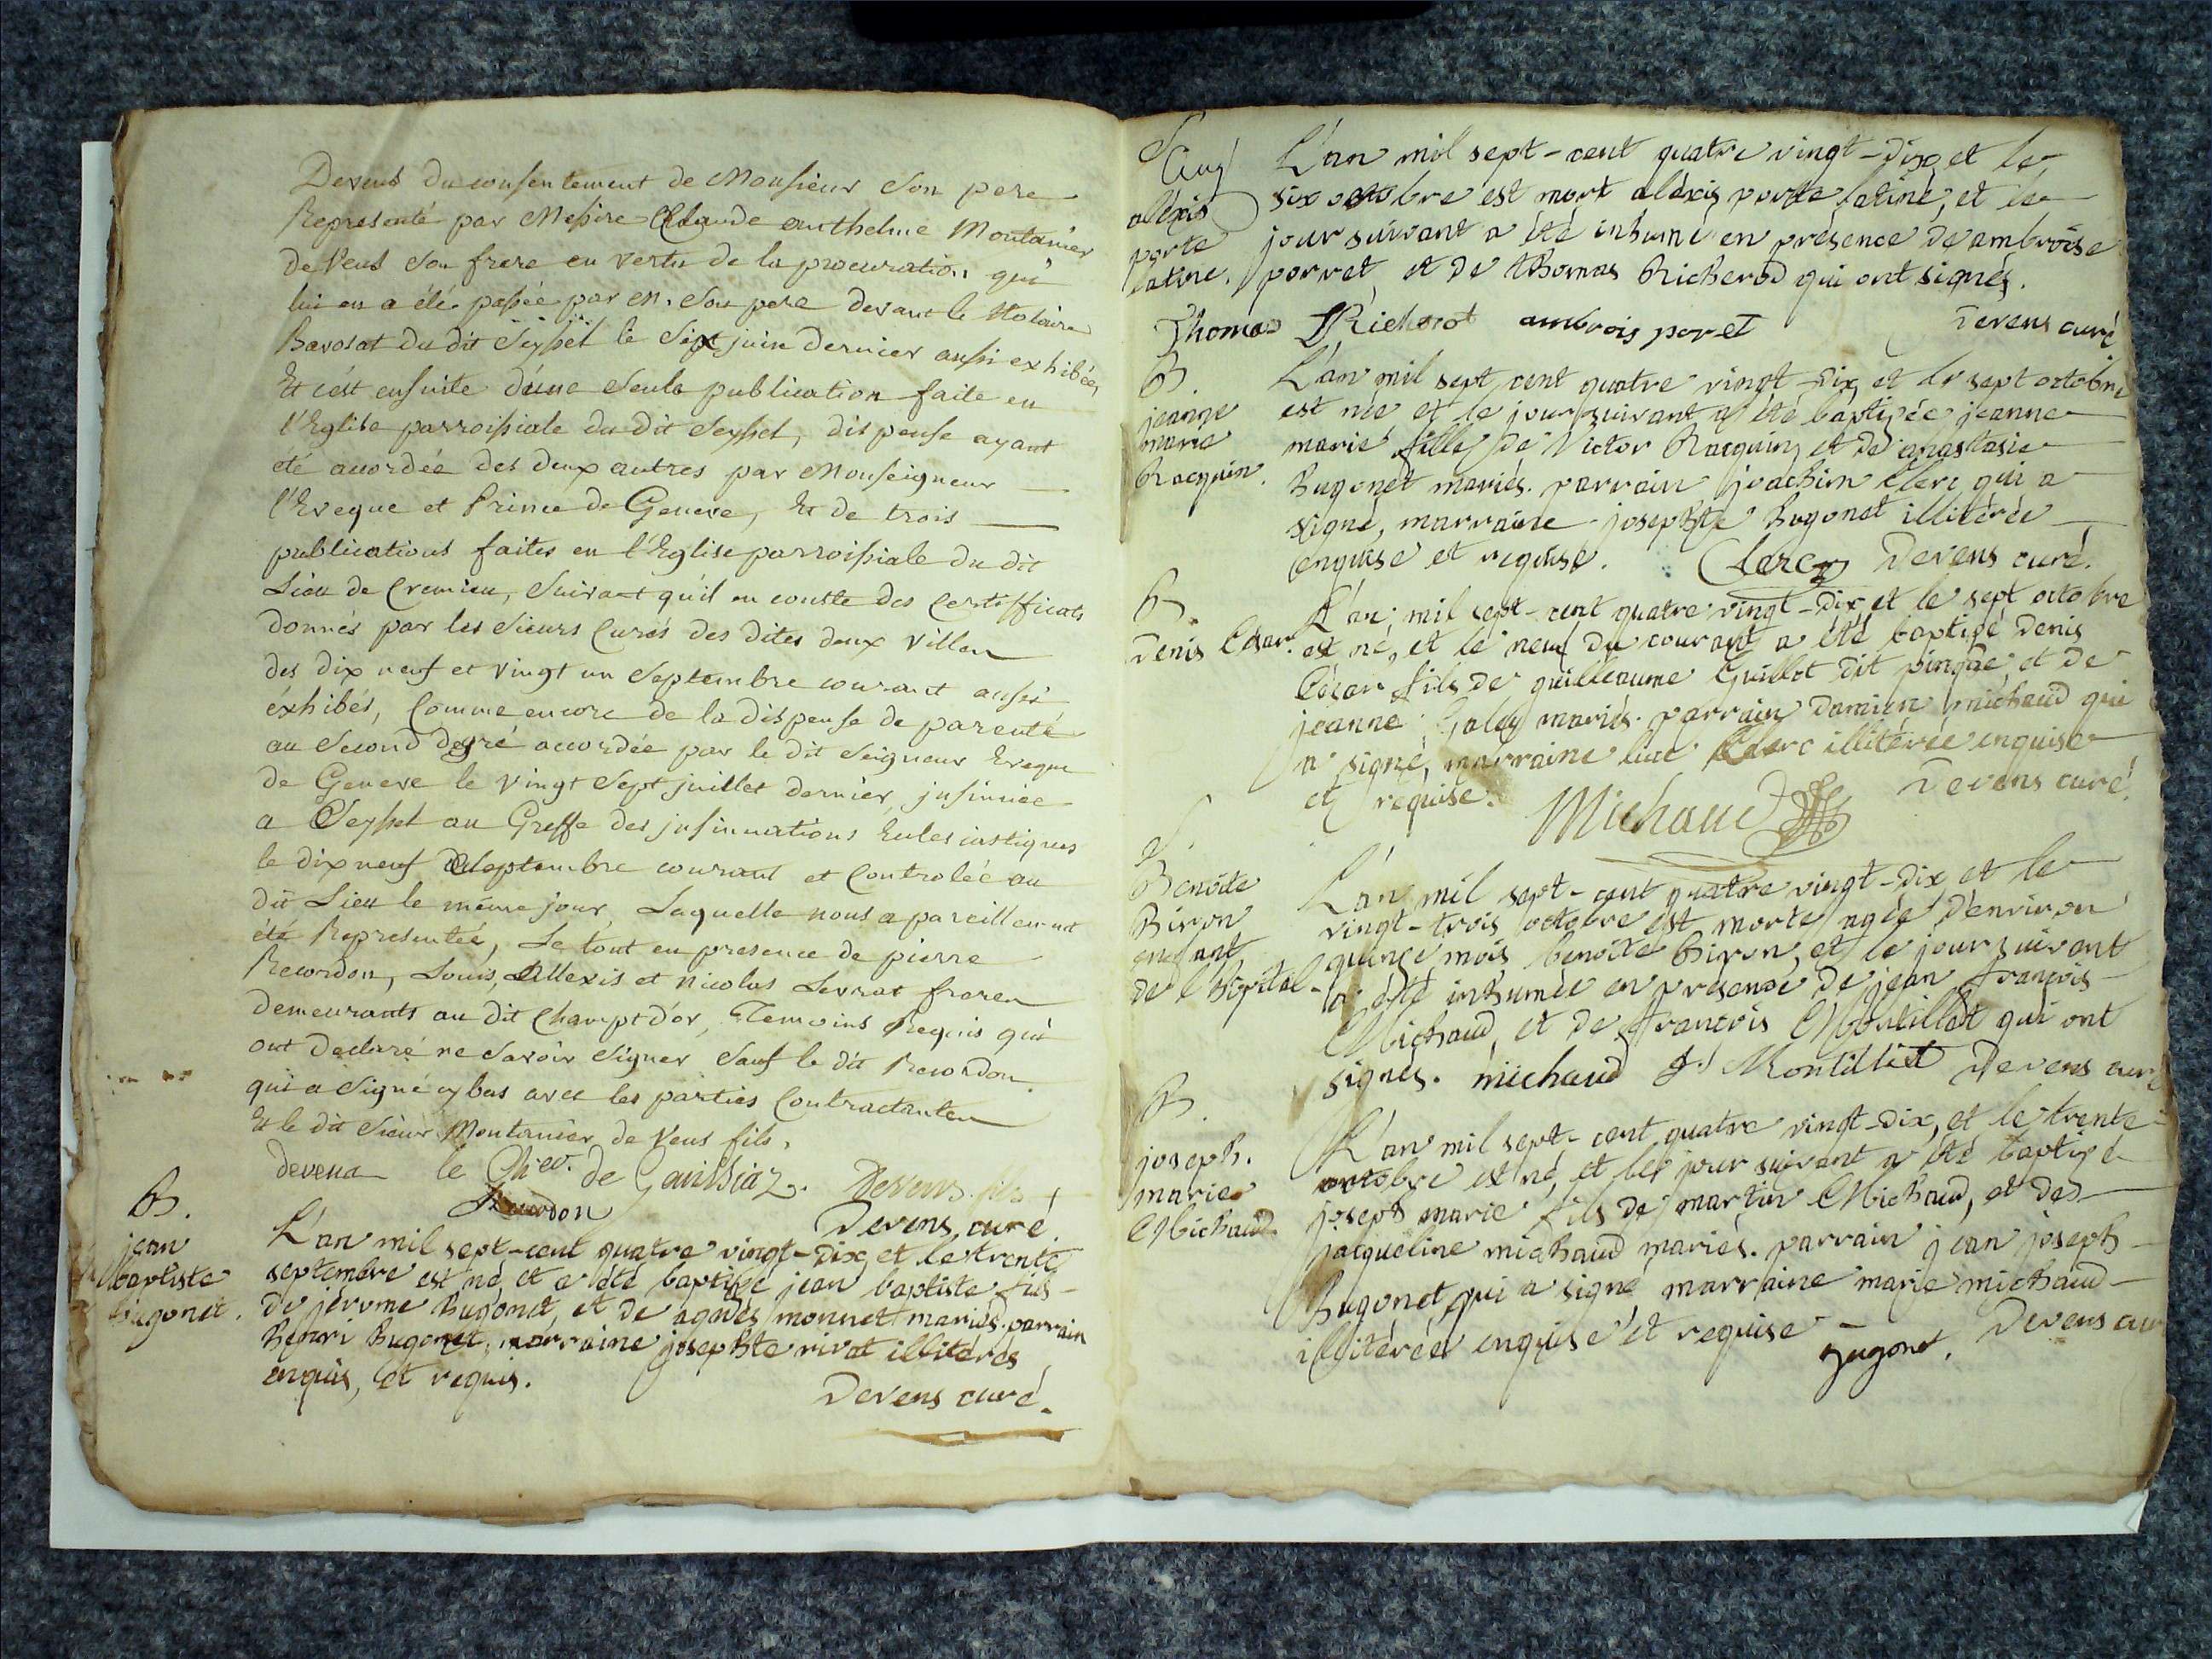 Devens du consentement de Monsieur Son pere
Representé par Messire Claude anthelme Montanier
De Vens Son frere en vertu de la procuration qui
lui en a été passée par M. Son pere devant le Notaire
Bavosat du dit Seyssel le Sept juin dernier aussi exhibée,
Et c'est ensuite d'une Seule publication faite en
l'Eglise parroissiale du dit Seyssel, dispense ayant
eté accordée des deux autres par Monseigneur
l'Eveque et Prince de Geneve, Et de trois
publications faites en l'Eglise parroissiale du dit
Lieu de Cremieu, Suivant qu'il en conste des Certifficats
donnés par les Sieurs Curés des dites deux Villes
des dix neuf et vingt un Septembre courant aussi
éxhibés, Comme encore de la dispense de parenté
au Second degré accordée par le dit Seigneur Eveque
de Geneve le vingt Sept juillet dernier, insinuée
a Seyssel au Greffe des insinuations Eclesiastiques
le dix neuf Septembre courant et Controlée au
dit Lieu le même jour, Laquelle nous a pareillement
été Representée, Le tout en presence de pierre
Recordon, Louis, Allexis et Nicolas Levrat freres
demeurants au dit Champt d'or, Temoins Requis qui
ont Declaré ne Savoir Signer Sauf le dit Recordon
qui a Signé cy bas avec les parties Contractantes
Et le dit Sieur Montanier de Vens fils.
devens le Chev. de Devens fils
Recordon Devens curé.
B.
jean
baptiste
bugonet.
L'an mil sept-cent quatre vingt-dix, et le trente
septembre est né et a été baptisé jean baptiste fils
de jérome Bugonet, et de agnès monnet mariés. parrain
Henri Bugonet, marraine josephte rivat illitérés
enquis, et requis.
Devens curé.
S
aléxis
porte
latine.
L'an mil sept-cent quatre vingt-dix et le
six octobre est mort aléxis porte latine, et le
jour suivant a été inhumé en présence de ambroise
porret, et de thomas Richerod qui ont signés.
Thomas Richerot ambrois poret Devens curé
B.
jeanne
marie
Racquin.
L'an mil sept cent quatre vingt-dix, et le sept octobre
est née et le jour suivant a été baptisée jeanne
marie fille de Victor Racquin, et de anastasie
Bugonet mariés. parrain joachim Clerc qui a
signé, marraine josephte Bugonet illitérée
enquise et requise. Clerc Devens curé.
B.
Denis César.
L'an mil sept-cent quatre vingt-dix, et le sept octobre
est né, et le neuf du courant a été baptisé Denis
César fils de guilleaume Guillot dit et de
jeanne mariés. parrain Damien michaud qui
a signé, marraine Clerc illitérée enquise
et requise. Michaud Devens curé.
S.
Benoite
Biron
enfant
de l'hôpital
L'an mil sept-cent quatre vingt-dix et le
vingt-trois octobre est morte agée d'environ
quinze mois benoite biron, et le jour suivant
a été inhumée en présence de jean françois
Michaud, et de françois Montillet qui ont
signés. michaud f. Montillet Devens curé
B.
joseph.
marie
Michaud
L'an mil sept-cent quatre vingt-dix, et le trente
octobre est né, et le jour suivant a été baptisé
joseph marie fils de martin Michaud, et de
jacqueline michaud mariés. parrain jean joseph
Bugonet, qui a signé marraine marie michaud
illitérée enquise et requise Bugonet. Devens cur